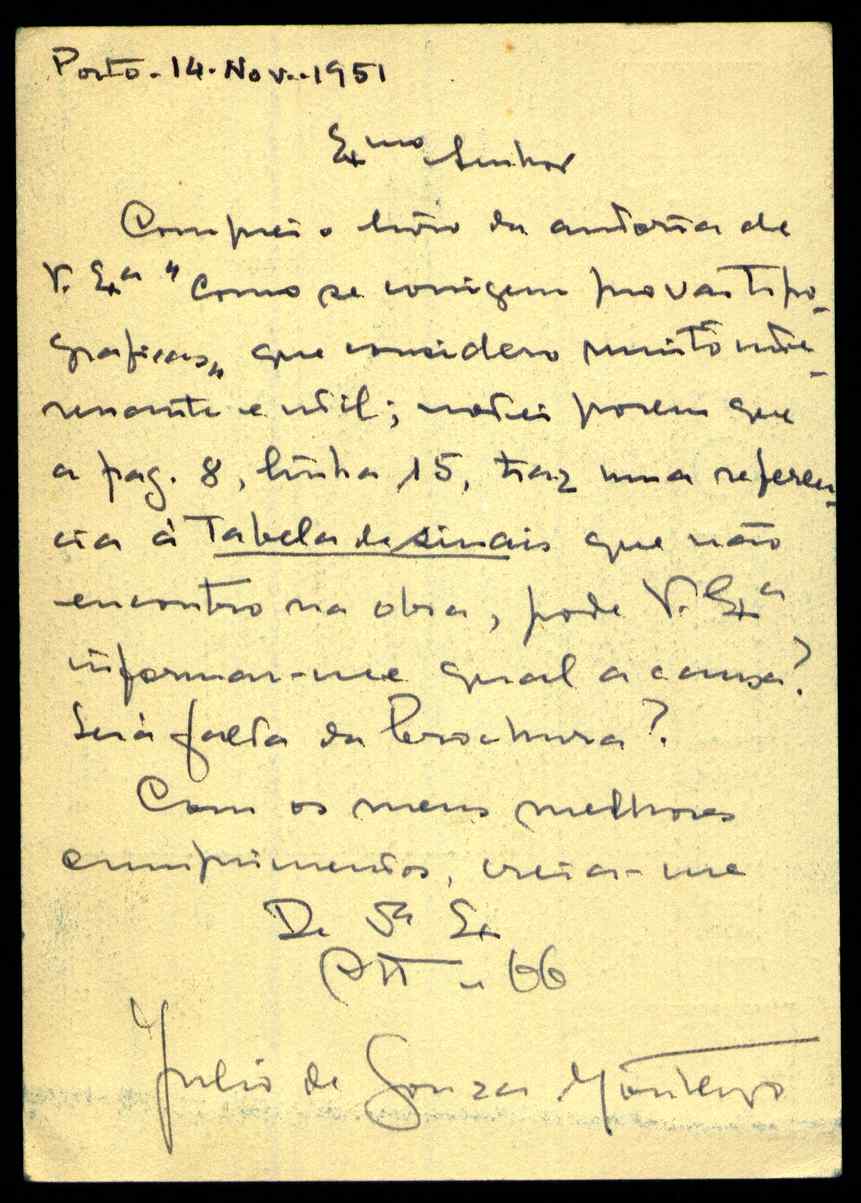 Porto. 14. Nov. 1951
Exmo Senhor
Comprei o livro da autoria de
V. Exa "Como se corrigem provas tipo-
graficas„ que considero muito inte-
ressante e util; notei porem que
a pag. 8, linha 15, traz uma referen-
cia á Tabela de sinais que não
encontro na obra, pode V. Exa
informar-me qual a causa?
Será falta da brochura?
Com os meus melhores
cumprimentos, creia-me
De Va Ex
Att
Julio de Souza Monteiro